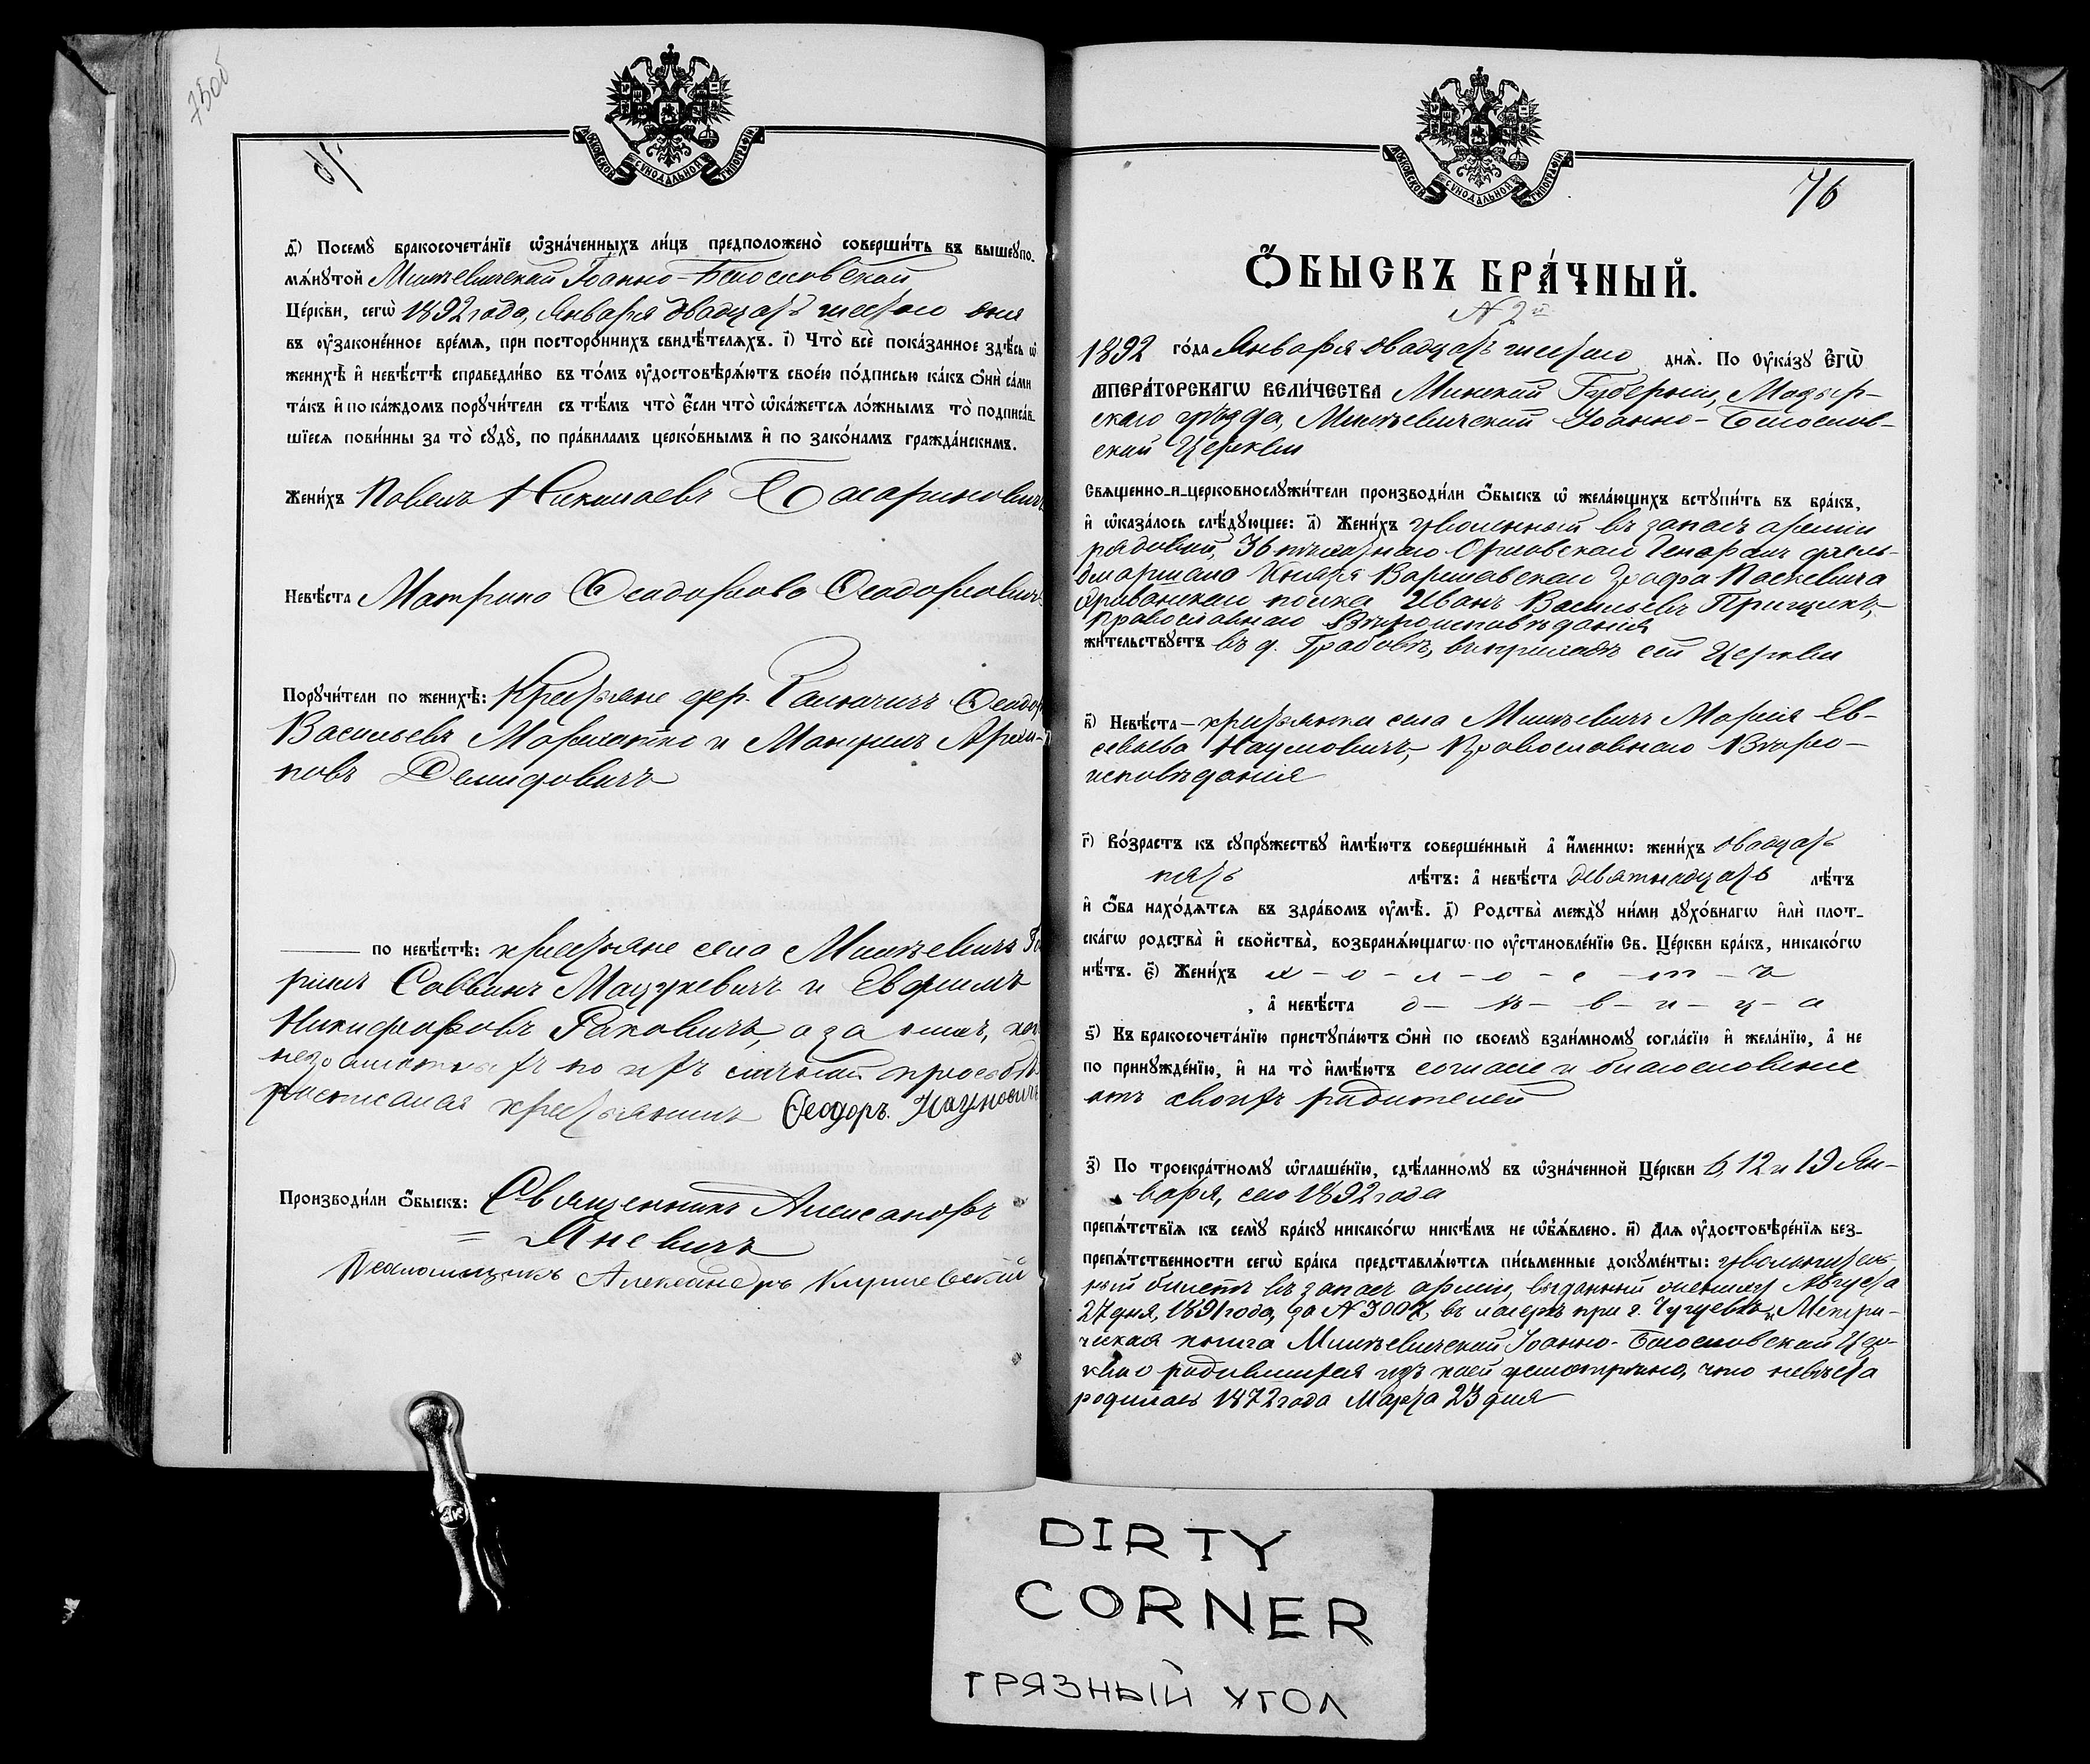 75об
МОСКОВСКОЙ СѴНОДАЛЬНОЙ ТИПОГРАФІИ
д҃і) Посемꙋ̀ бракосочета́нїе ѡ҆зна́ченныхъ ли́цъ предположено̀ соверши́ть въ вышеꙋпо-
мѧ́нꙋтой Милевичской Іоанно-Богословской
Це́ркви, сегѡ̀ 1892 года, Января двадцать шестого дня
въ ᲂу҆законе́нное вре́мѧ, при посторо́ннихъ свидѣ́телѧхъ. і҃) Что̀ всѐ пока́занное здѣ́сь ѡ҆
женихѣ̀ и҆ невѣ́стѣ справедли́во въ то́мъ ᲂу҆достовѣрѧ́ютъ свое́ю по́дписью ка́къ ѻ҆нѝ са́ми
та́къ и҆ по ка́ждомъ порꙋчи́тели съ тѣ́мъ что̀ є҆́сли что̀ ѡ҆ка́жетсѧ ло́жнымъ то̀ подписа́в-
шїесѧ пови́нны за то̀ сꙋдꙋ̀, по пра́виламъ церко́внымъ и҆ по зако́намъ гражда́нскимъ.
Жени́хъ Павелъ Николаевъ
Невѣ́ста Матрона Ѳеодорова Ѳеодорович
Порꙋчи́тели по женихѣ̀: Крестьяне дер. Ѳеодор
Васильевъ и Архи-
повъ Демидовичъ
по невѣ́стѣ: крестьяне села Милевичъ
Саввинъ Мацукевичъ и Евфимъ
Никифоровъ Раковичъ, а за
неграмотныхъ по ихъ личной просьбѣ
росписался крестьянинъ Ѳеодоръ. Наумовичъ
Производи́ли ѻ҆́быскъ: Священникъ Александръ
= Яневичъ
Псаломщикъ Александръ
МОСКОВСКОЙ СѴНОДАЛЬНОЙ ТИПОГРАФІИ
76
Ѻ҆́БЫСКЪ БРА́ЧНЫЙ.
N 2й
1892 го́да Января двадцать шестого днѧ̀. По ᲂу҆ка́зꙋ Є҆ГѠ̀
ИМПЕРА́ТОРСКАГѠ ВЕЛИ́ЧЕСТВА Минской Губерніи, Мозыр-
скаго уѣзда, Милевичской Іоанно-Богослов-
ской Церкви
Свѧще́нно-и-церковнослꙋжи́тели производи́ли ѻ҆́быскъ ѡ҆ жела́ющихъ встꙋпи́ть въ бра́къ,
и҆ ѡ҆каза́лось слѣ́дꙋющее: а҃) Жени́хъ уволенный въ запасъ арміи
рядовой, 36 пѣхотнаго Орловскаго Генералъ фель-
дмаршала Князя Варшавскаго Графа Паскевича
Эриванскаго полка Иванъ Васильевъ Прищикъ,
Православнаго Вѣроисповѣданія
жи́тельствꙋетъ въ д. Грабовѣ, въ приходѣ сей Церкви
в҃) Невѣ́ста – крестьянка села Милевичъ Марія Ев-
сеѣева Наумовичъ, Православнаго Вѣро-
исповѣданія
г҃) Во́зрастъ къ сꙋпрꙋ́жествꙋ и҆мѣ́ютъ соверше́нный а҆̀ и҆́меннѡ: жени́хъ двадцать
пять лѣ́тъ: а҆̀ невѣ́ста девятнадцать лѣ́тъ
и҆ ѻ҆́ба нахо́дѧтсѧ въ здра́вомъ ᲂу҆мѣ̀. д҃) Родства̀ междꙋ̀ ни́ми дꙋхо́внагѡ и҆лѝ плот-
ска́гѡ родства̀ и҆ свойства̀, возбранѧ́ющагѡ по ᲂу҆становле́нїю Св. Це́ркви бра́къ, никако́гѡ
нѣ́тъ. є҃) Жени́хъ х - о - л - о - с - т - ъ
, а҆̀ невѣ́ста д - ѣ - в - и - ц - а
ѕ҃) Къ бракосочета́нїю пристꙋпа́ютъ ѻ҆нѝ по своемꙋ̀ взаи́мномꙋ согла́сїю и҆ жела́нїю, а҆̀ не
по принꙋжде́нїю, и҆ на то̀ и҆мѣ́ютъ согласіе и благословеніе
отъ своихъ родителей
з҃) По троекра́тномꙋ ѡ҆глаше́нїю, сдѣ́ланномꙋ въ ѡ҆зна́ченной Це́ркви 6, 12 и 19 Ян-
варя, сего 1892 года
препѧ́тствїѧ къ семꙋ̀ бра́кꙋ никако́гѡ никѣ́мъ не ѡ҆б̾ѧ́влено. и҃) Длѧ ᲂу҆достовѣре́нїѧ без-
препѧ́тственности сегѡ̀ бра́ка представлѧ́ютсѧ пи́сьменные докꙋме́нты: увольнитель-
ный билетъ въ запасъ арміи, выданный Августа
27 дня, 1891 года, за N 3007, въ лагерѣ при г. Чугуевѣ, и Метри-
ческая книга Милевичской Іоанно-Богословской Цер-
кви о родившихся изъ коей усмотрѣно, что невѣста
родилась 1872 года Марта 23 дня
DIRTY
CORNER
ГРЯЗНЫЙ УГОЛ